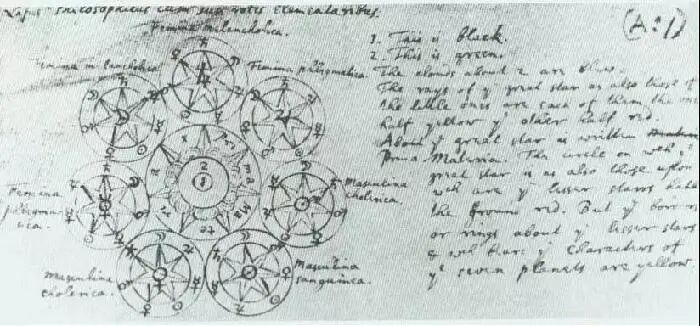 Lapis Philosophicus cum suis rotis Elementaribus.
(A:1)
Femina melancholica.
Femina melancholica
Femina phlegmatica.
Femina phlegmatica.
Masculina cholerica.
Masculina cholerica.
Masculina sanguinea.
1. This is black.
2. This is green.
The clouds about 2 are blew.
The rays of yᵉ great star as also those of
the little ones are each of them the one
half yellow yᵉ other half red.
About yᵉ great star is written
Prima Materia. The circle on wch yᵉ
great star is as also those upon
wch are yᵉ lesser starrs have
the ground red. But yᵉ borders
or rings about yᵉ lesser stars
& wch have yᵉ characters of
yᵉ seven planets are yellow